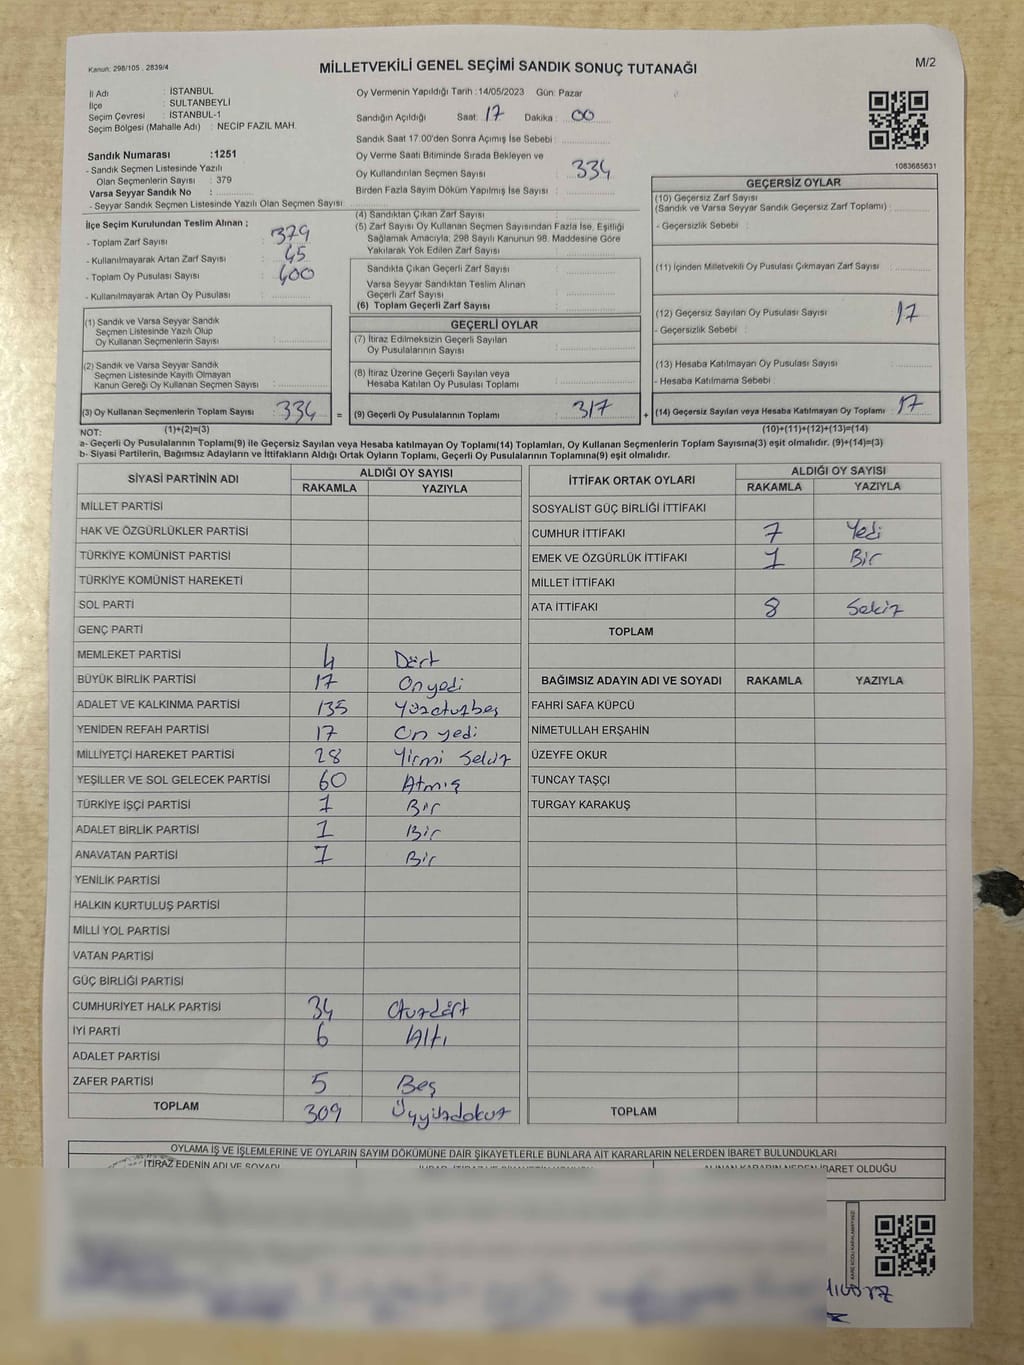 Kanun: 298/105 , 2839/4
MİLLETVEKİLİ GENEL SEÇİMİ SANDIK SONUÇ TUTANAĞI
M/2
İl Adı : İSTANBUL
İlçe : SULTANBEYLİ
Seçim Çevresi : İSTANBUL-1
Seçim Bölgesi (Mahalle Adı) : NECİP FAZIL MAH.
Sandık Numarası :1251
- Sandık Seçmen Listesinde Yazılı
Olan Seçmenlerin Sayısı : 379
Varsa Seyyar Sandık No :
- Seyyar Sandık Seçmen Listesinde Yazılı Olan Seçmen Sayısı:
Oy Vermenin Yapıldığı Tarih :14/05/2023 Gün: Pazar
Sandığın Açıldığı Saat: 17 Dakika : 00
Sandık Saat 17.00'den Sonra Açımış İse Sebebi :
Oy Verme Saati Bitiminde Sırada Bekleyen ve
Oy Kullandırılan Seçmen Sayısı : 334
Birden Fazla Sayım Döküm Yapılmış İse Sayısı :
1083685631
İlçe Seçim Kurulundan Teslim Alınan ;
- Toplam Zarf Sayısı : 379
- Kullanılmayarak Artan Zarf Sayısı : 45
- Toplam Oy Pusulası Sayısı : 400
- Kullanılmayarak Artan Oy Pusulası :
(1) Sandık ve Varsa Seyyar Sandık
Seçmen Listesinde Yazılı Olup
Oy Kullanan Seçmenlerin Sayısı :
(2) Sandık ve Varsa Seyyar Sandık
Seçmen Listesinde Kayıtlı Olmayan
Kanun Gereği Oy Kullanan Seçmen Sayısı :
(3) Oy Kullanan Seçmenlerin Toplam Sayısı : 334 =
(4) Sandıktan Çıkan Zarf Sayısı :
(5) Zarf Sayısı Oy Kullanan Seçmen Sayısından Fazla İse, Eşitliği
Sağlamak Amacıyla, 298 Sayılı Kanunun 98. Maddesine Göre
Yakılarak Yok Edilen Zarf Sayısı :
Sandıkta Çıkan Geçerli Zarf Sayısı :
Varsa Seyyar Sandıktan Teslim Alınan
Geçerli Zarf Sayısı :
(6) Toplam Geçerli Zarf Sayısı :
GEÇERLİ OYLAR
(7) İtiraz Edilmeksizin Geçerli Sayılan
Oy Pusulalarının Sayısı :
(8) İtiraz Üzerine Geçerli Sayılan veya
Hesaba Katılan Oy Pusulası Toplamı :
(9) Geçerli Oy Pusulalarının Toplamı : 317 +
GEÇERSİZ OYLAR
(10) Geçersiz Zarf Sayısı
(Sandık ve Varsa Seyyar Sandık Geçersiz Zarf Toplamı) :
- Geçersizlik Sebebi :
(11) İçinden Milletvekili Oy Pusulası Çıkmayan Zarf Sayısı :
(12) Geçersiz Sayılan Oy Pusulası Sayısı : 17
- Geçersizlik Sebebi :
(13) Hesaba Katılmayan Oy Pusulası Sayısı :
- Hesaba Katılmama Sebebi :
(14) Geçersiz Sayılan veya Hesaba Katılmayan Oy Toplamı : 17
NOT: (1)+(2)=(3) (10)+(11)+(12)+(13)=(14)
a- Geçerli Oy Pusulalarının Toplamı(9) ile Geçersiz Sayılan veya Hesaba katılmayan Oy Toplamı(14) Toplamları, Oy Kullanan Seçmenlerin Toplam Sayısına(3) eşit olmalıdır. (9)+(14)=(3)
b- Siyasi Partilerin, Bağımsız Adayların ve İttifakların Aldığı Ortak Oyların Toplamı, Geçerli Oy Pusulalarının Toplamına(9) eşit olmalıdır.
SİYASİ PARTİNİN ADI ALDIĞI OY SAYISI
RAKAMLA YAZIYLA
MİLLET PARTİSİ
HAK VE ÖZGÜRLÜKLER PARTİSİ
TÜRKİYE KOMÜNİST PARTİSİ
TÜRKİYE KOMÜNİST HAREKETİ
SOL PARTİ
GENÇ PARTİ
MEMLEKET PARTİSİ 4 Dört
BÜYÜK BİRLİK PARTİSİ 17 Onyedi
ADALET VE KALKINMA PARTİSİ 135 Yüzotuzbeş
YENİDEN REFAH PARTİSİ 17 On yedi
MİLLİYETÇİ HAREKET PARTİSİ 28 Yirmi Sekiz
YEŞİLLER VE SOL GELECEK PARTİSİ 60 Atmış
TÜRKİYE İŞÇİ PARTİSİ 1 Bir
ADALET BİRLİK PARTİSİ 1 Bir
ANAVATAN PARTİSİ 1 Bir
YENİLİK PARTİSİ
HALKIN KURTULUŞ PARTİSİ
MİLLİ YOL PARTİSİ
VATAN PARTİSİ
GÜÇ BİRLİĞİ PARTİSİ
CUMHURİYET HALK PARTİSİ 34 Otuzdört
İYİ PARTİ 6 Altı
ADALET PARTİSİ
ZAFER PARTİSİ 5 Beş
TOPLAM 309 Üçyüzdokuz
İTTİFAK ORTAK OYLARI ALDIĞI OY SAYISI
RAKAMLA YAZIYLA
SOSYALİST GÜÇ BİRLİĞİ İTTİFAKI
CUMHUR İTTİFAKI 7 Yedi
EMEK VE ÖZGÜRLÜK İTTİFAKI 1 Bir
MİLLET İTTİFAKI
ATA İTTİFAKI 8 Sekiz
TOPLAM
BAĞIMSIZ ADAYIN ADI VE SOYADI RAKAMLA YAZIYLA
FAHRİ SAFA KÜPCÜ
NİMETULLAH ERŞAHİN
ÜZEYFE OKUR
TUNCAY TAŞÇI
TURGAY KARAKUŞ
TOPLAM
OYLAMA İŞ VE İŞLEMLERİNE VE OYLARIN SAYIM DÖKÜMÜNE DAİR ŞİKAYETLERLE BUNLARA AİT KARARLARIN NELERDEN İBARET BULUNDUKLARI
İTİRAZ EDENİN ADI VE SOYADI
ALINAN KARARIN NEDEN İBARET OLDUĞU